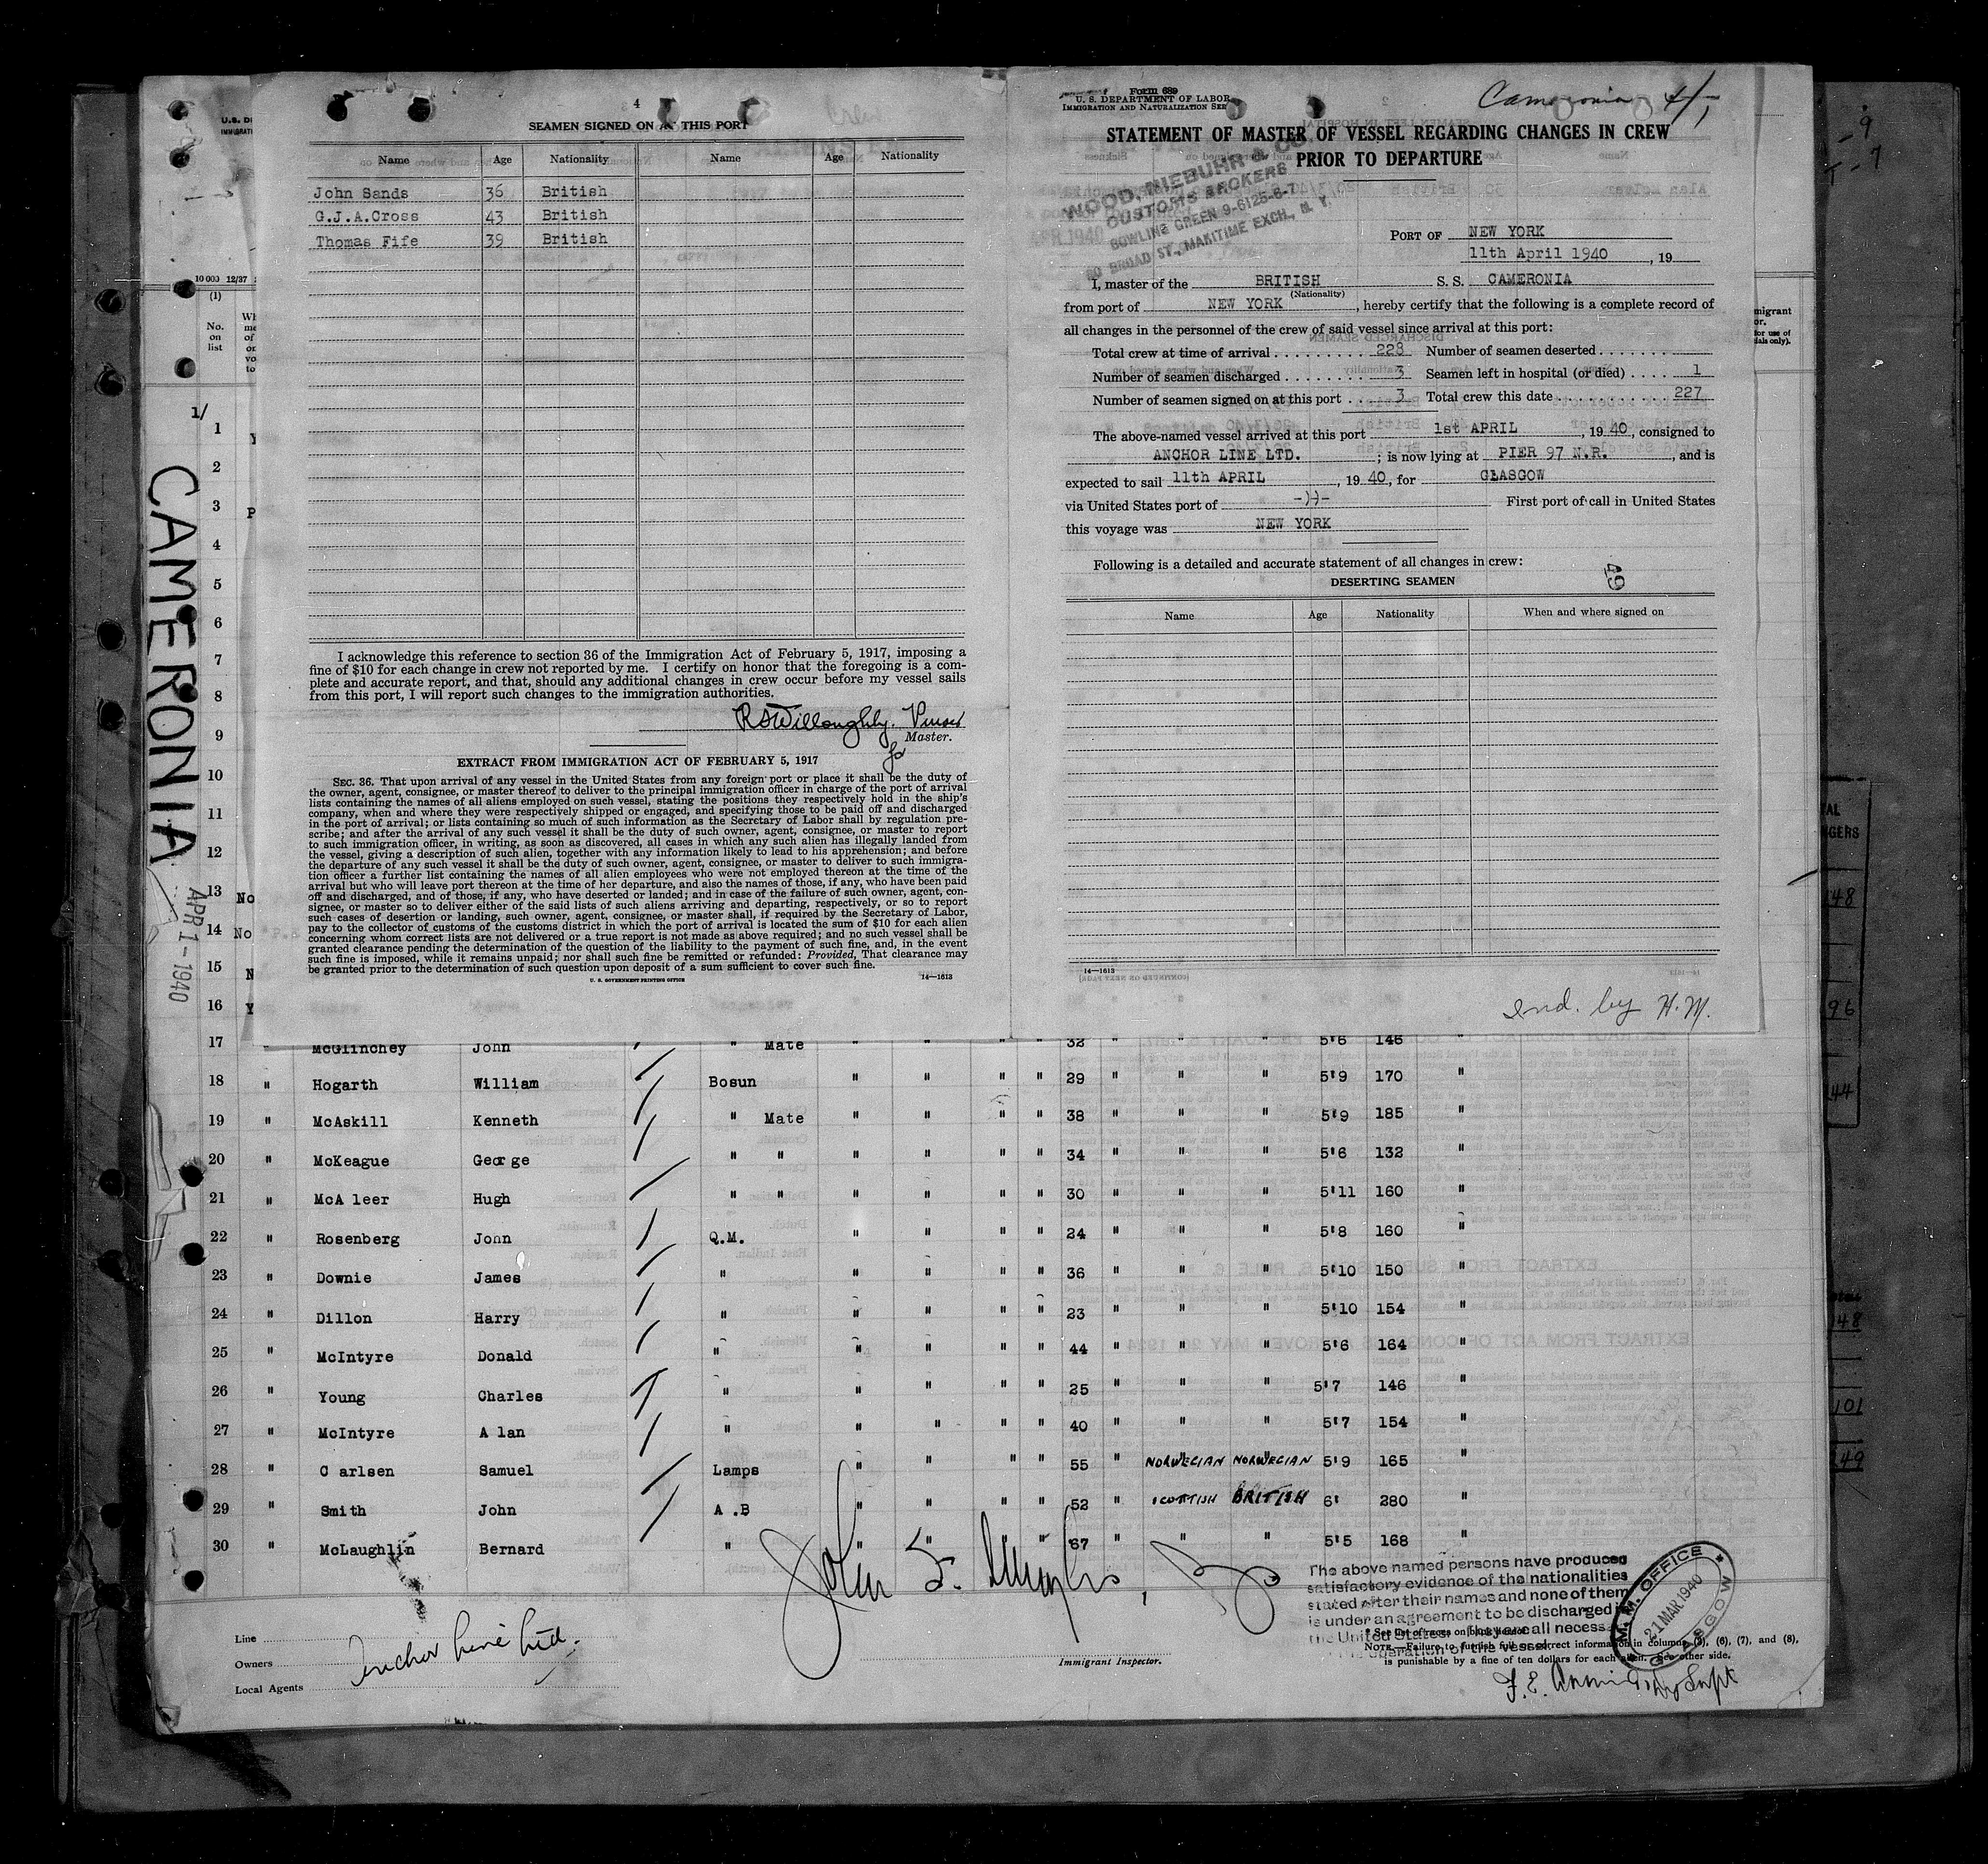 4
SEAMEN SIGNED ON AT THIS PORT
Name Age Nationality Name Age Nationality
John Sands 36 British
G.J.A.Cross 43 British
Thomas Fife 39 British
I acknowledge this reference to section 36 of the Immigration Act of February 5, 1917, imposing a
fine of $10 for each change in crew not reported by me. I certify on honor that the foregoing is a com-
plete and accurate report, and that, should any additional changes in crew occur before my vessel sails
from this port, I will report such changes to the immigration authorities.
RSWilloughby. Purser
for Master.
EXTRACT FROM IMMIGRATION ACT OF FEBRUARY 5, 1917
SEC. 36. That upon arrival of any vessel in the United States from any foreign port or place it shall be the duty of
the owner, agent, consignee, or master thereof to deliver to the principal immigration officer in charge of the port of arrival
lists containing the names of all aliens employed on such vessel, stating the positions they respectively hold in the ship's
company, when and where they were respectively shipped or engaged, and specifying those to be paid off and discharged
in the port of arrival; or lists containing so much of such information as the Secretary of Labor shall by regulation pre-
scribe; and after the arrival of any such vessel it shall be the duty of such owner, agent, consignee, or master to report
to such immigration officer, in writing, as soon as discovered, all cases in which any such alien has illegally landed from
the vessel, giving a description of such alien, together with any information likely to lead to his apprehension; and before
the departure of any such vessel it shall be the duty of such owner, agent, consignee, or master to deliver to such immigra-
tion officer a further list containing the names of all alien employees who were not employed thereon at the time of the
arrival but who will leave port thereon at the time of her departure, and also the names of those, if any, who have been paid
off and discharged, and of those, if any, who have deserted or landed; and in case of the failure of such owner, agent, con-
signee, or master so to deliver either of the said lists of such aliens arriving and departing, respectively, or so to report
such cases of desertion or landing, such owner, agent, consignee, or master shall, if required by the Secretary of Labor,
pay to the collector of customs of the customs district in which the port of arrival is located the sum of $10 for each alien
concerning whom correct lists are not delivered or a true report is not made as above required; and no such vessel shall be
granted clearance pending the determination of the question of the liability to the payment of such fine, and, in the event
such fine is imposed, while it remains unpaid; nor shall such fine be remitted or refunded: Provided, That clearance may
be granted prior to the determination of such question upon deposit of a sum sufficient to cover such fine.
U. S. GOVERNMENT PRINTING OFFICE 14—1613
Form 689
U. S. DEPARTMENT OF LABOR
IMMIGRATION AND NATURALIZATION SER
Cameronia 4/1
STATEMENT OF MASTER OF VESSEL REGARDING CHANGES IN CREW
PRIOR TO DEPARTURE
WOOD, NIEBUHR & CO.
CUSTOMS BROKERS
BOWLING GREEN 9-6125-6-7
80 BROAD ST., MARITIME EXCH., N. Y.
PORT OF NEW YORK
11th April 1940, 19
I, master of the BRITISH S. S. CAMERONIA
(Nationality)
from port of NEW YORK, hereby certify that the following is a complete record of
all changes in the personnel of the crew of said vessel since arrival at this port:
Total crew at time of arrival 228 Number of seamen deserted
Number of seamen discharged 3 Seamen left in hospital (or died) 1
Number of seamen signed on at this port 3 Total crew this date 227
The above-named vessel arrived at this port 1st APRIL, 1940, consigned to
ANCHOR LINE LTD.; is now lying at PIER 97 N.R., and is
expected to sail 11th APRIL, 1940, for GLASGOW
via United States port of First port of call in United States
this voyage was NEW YORK
Following is a detailed and accurate statement of all changes in crew:
49
DESERTING SEAMEN
Name Age Nationality When and where signed on
14—1613
Ind. by H.M.
CAMERONIA
APR 1-1940
10 000 12/37
(1)
No. on list
1/
1
2
3
4
5
6
7
8
9
10
11
12
13 No
14 No
15 N
16 Y
17 " McGlinchey John / " Mate " " " " 32 " " " 5'6 146 "
18 " Hogarth William / Bosun " " " " 29 " " " 5'9 170 "
19 " McAskill Kenneth / " Mate " " " " 38 " " " 5'9 185 "
20 " McKeague George / " " " " " " 34 " " " 5'6 132 "
21 " McAleer Hugh / " " " " " " 30 " " " 5'11 160 "
22 " Rosenberg John / Q.M. " " " " 24 " " " 5'8 160 "
23 " Downie James / " " " " " 36 " " " 5'10 150 "
24 " Dillon Harry / " " " " " 23 " " " 5'10 154 "
25 " McIntyre Donald / " " " " " 44 " " " 5'6 164 "
26 " Young Charles / " " " " " 25 " " " 5'7 146 "
27 " McIntyre Alan / " " " " " 40 " " " 5'7 154 "
28 " Carlsen Samuel / Lamps " " " " 55 " NORWEGIAN NORWEGIAN 5'9 165 "
29 " Smith John / A.B " " " " 52 " SCOTTISH BRITISH 6' 280 "
30 " McLaughlin Bernard " " " " " 67 " " " 5'5 168
The above named persons have produced
satisfactory evidence of the nationalities
stated after their names and none of them
is under an agreement to be discharged in
the United States. They are all necess
the operation of the vessel.
M. M. OFFICE * GLASGOW *
21 MAR 1940
* See list of races on back hereof.
NOTE.—Failure to furnish full or correct information in columns (5), (6), (7), and (8),
is punishable by a fine of ten dollars for each alien. See other side.
Line
Owners Anchor Line Ltd.
Local Agents
Immigrant Inspector.